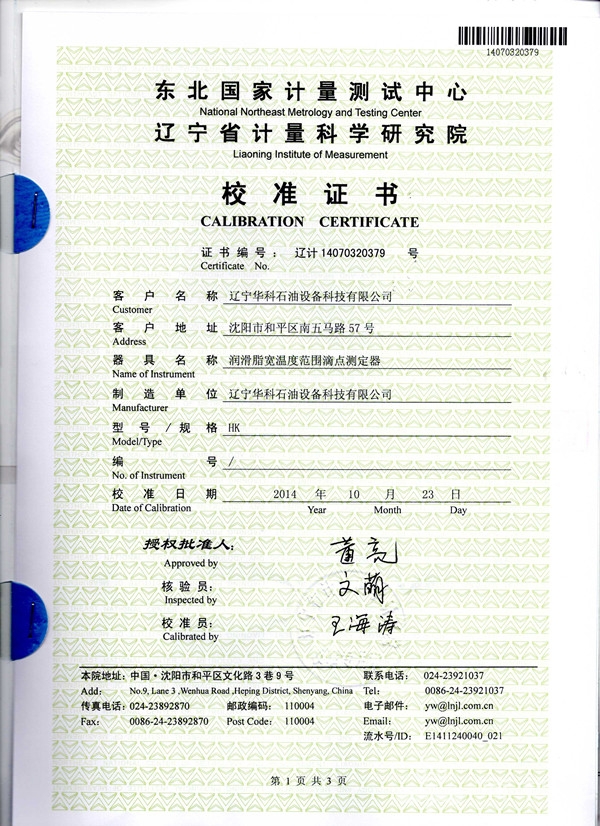 14070320379
东北国家计量测试中心
National Northeast Metrology and Testing Center
辽宁省计量科学研究院
Liaoning Institute of Measurement
校准证书
CALIBRATION CERTIFICATE
证书编号: 辽计14070320379 号
Certificate No.
客户名称 辽宁华科石油设备科技有限公司
Customer
客户地址 沈阳市和平区南五马路57号
Address
器具名称 润滑脂宽温度范围滴点测定器
Name of Instrument
制造单位 辽宁华科石油设备科技有限公司
Manufacturer
型号/规格 HK
Model/Type
编号 /
No. of Instrument
校准日期 2014 年 10 月 23 日
Date of Calibration Year Month Day
授权批准人:
Approved by
核验员: 文萌
Inspected by
校准员: 王海涛
Calibrated by
本院地址: 中国·沈阳市和平区文化路3巷9号 联系电话: 024-23921037
Add: No.9, Lane 3 ,Wenhua Road ,Heping District, Shenyang, China Tel: 0086-24-23921037
传真电话: 024-23892870 邮政编码: 110004 电子邮件: yw@lnjl.com.cn
Fax: 0086-24-23892870 Post Code: 110004 Email: yw@lnjl.com.cn
流水号/ID: E1411240040_021
第 1 页 共 3 页